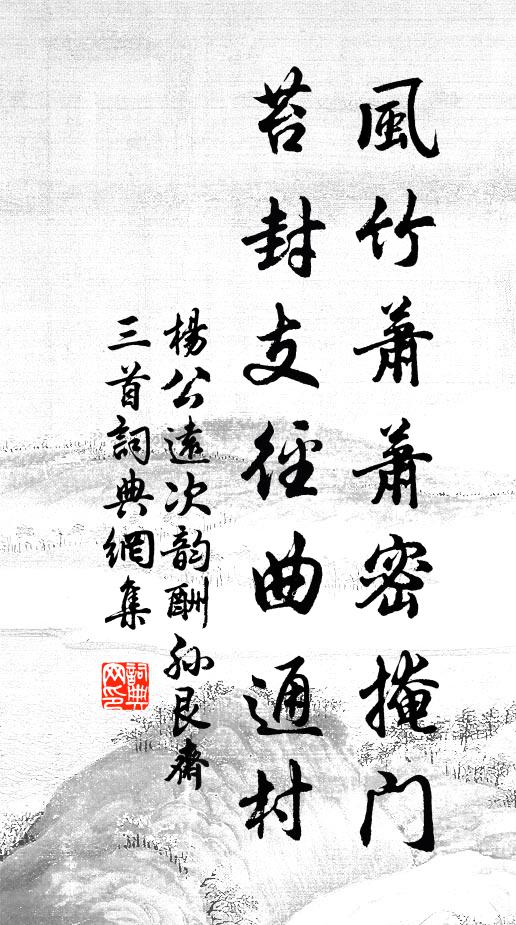 風竹蕭蕭密掩門
苔封支徑曲通村
楊公遠次韵酬孙艮齋
三首詞典網集
詞典网印